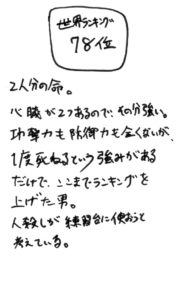 世界ランキング
78位
2人分の命。
心臓が2つあるので、その分強い。
功撃力も防御力も全くないが、
1度死ねるという強みがある
だけで、ここまでランキングを
上げた男。
人殺しが練習台に使おうと
考えている。